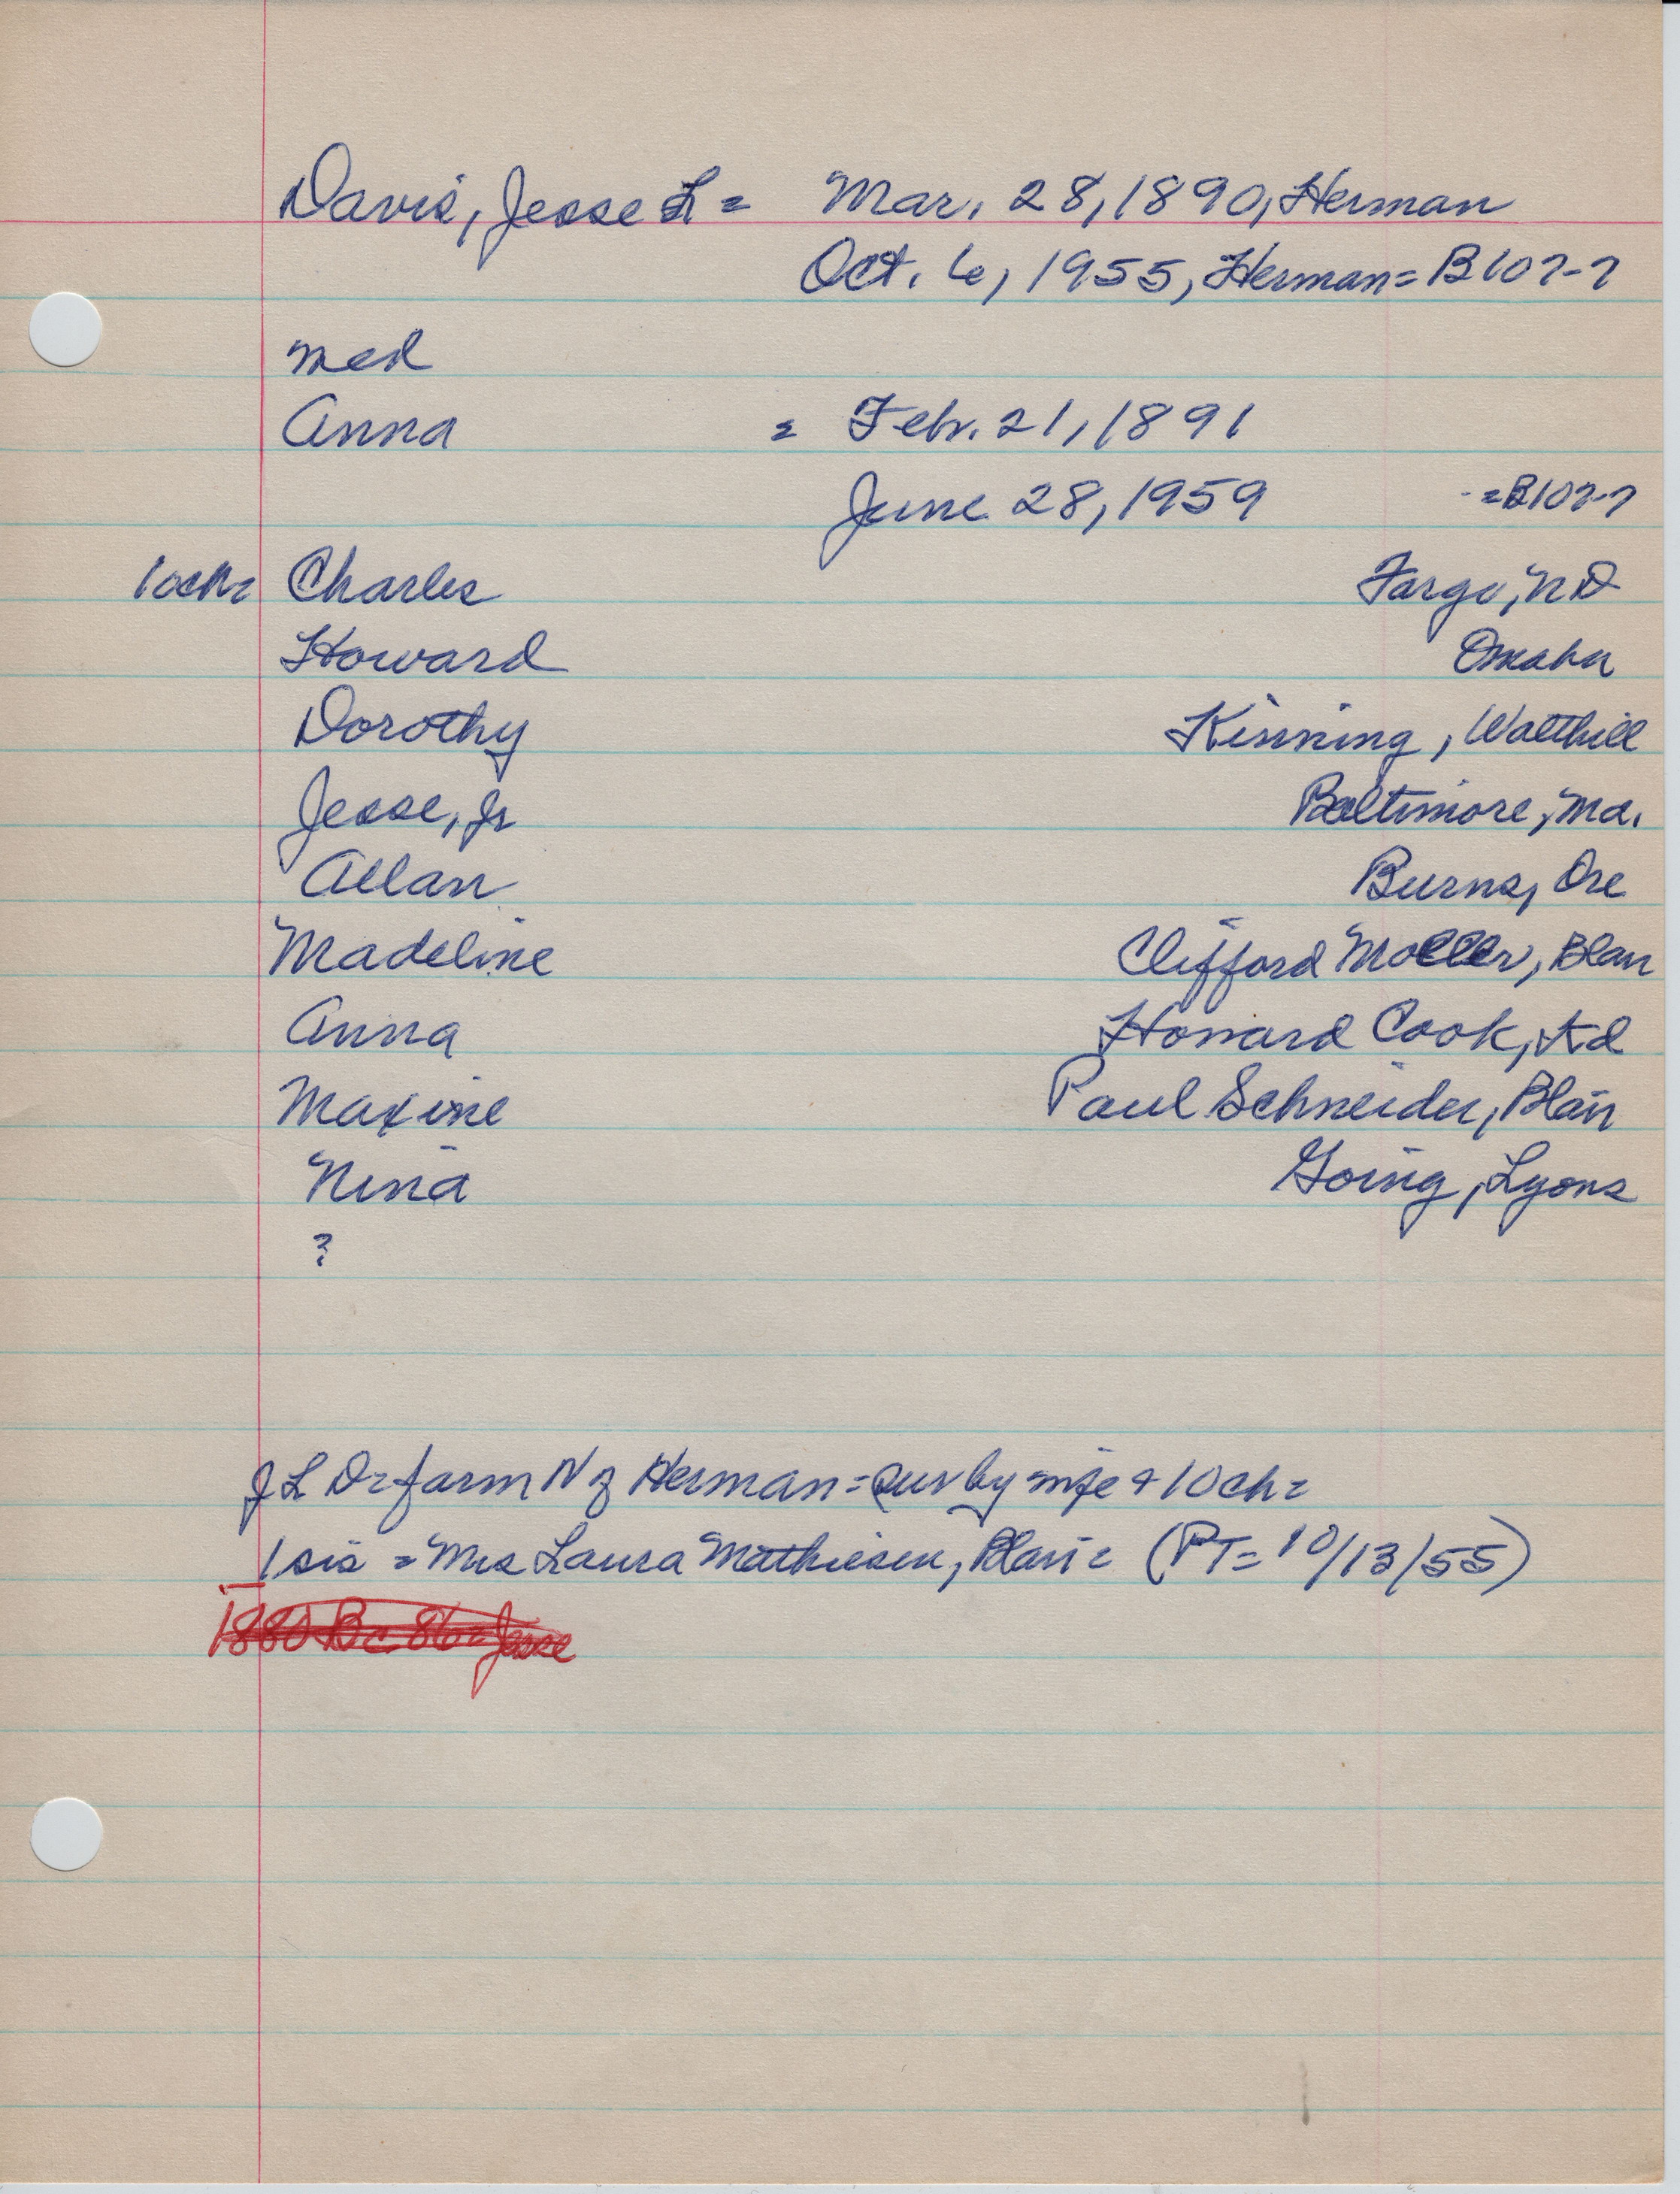 Davis, Jesse L = Mar. 28, 1890, Herman
Oct. 6, 1955, Herman = B107-7
med
Anna = Feb. 21, 1891
June 28, 1959 = B107-7
10ch= Charles Fargo, ND
Howard Omaha
Dorothy Kinning, Walthill
Jesse, Jr Baltimore, Md.
Allan Burns, Ore
Madeline Clifford Moeller, Blair
Anna Howard Cook, Kd
Maxine Paul Schneider, Blair
Nina Going, Lyons
?
J L D = farm N of Herman = sur by wife + 10 ch =
1 sis = Mrs Laura Mathiesen, Blair = (PT = 10/13/55)
1880 Bc 86 = Jesse